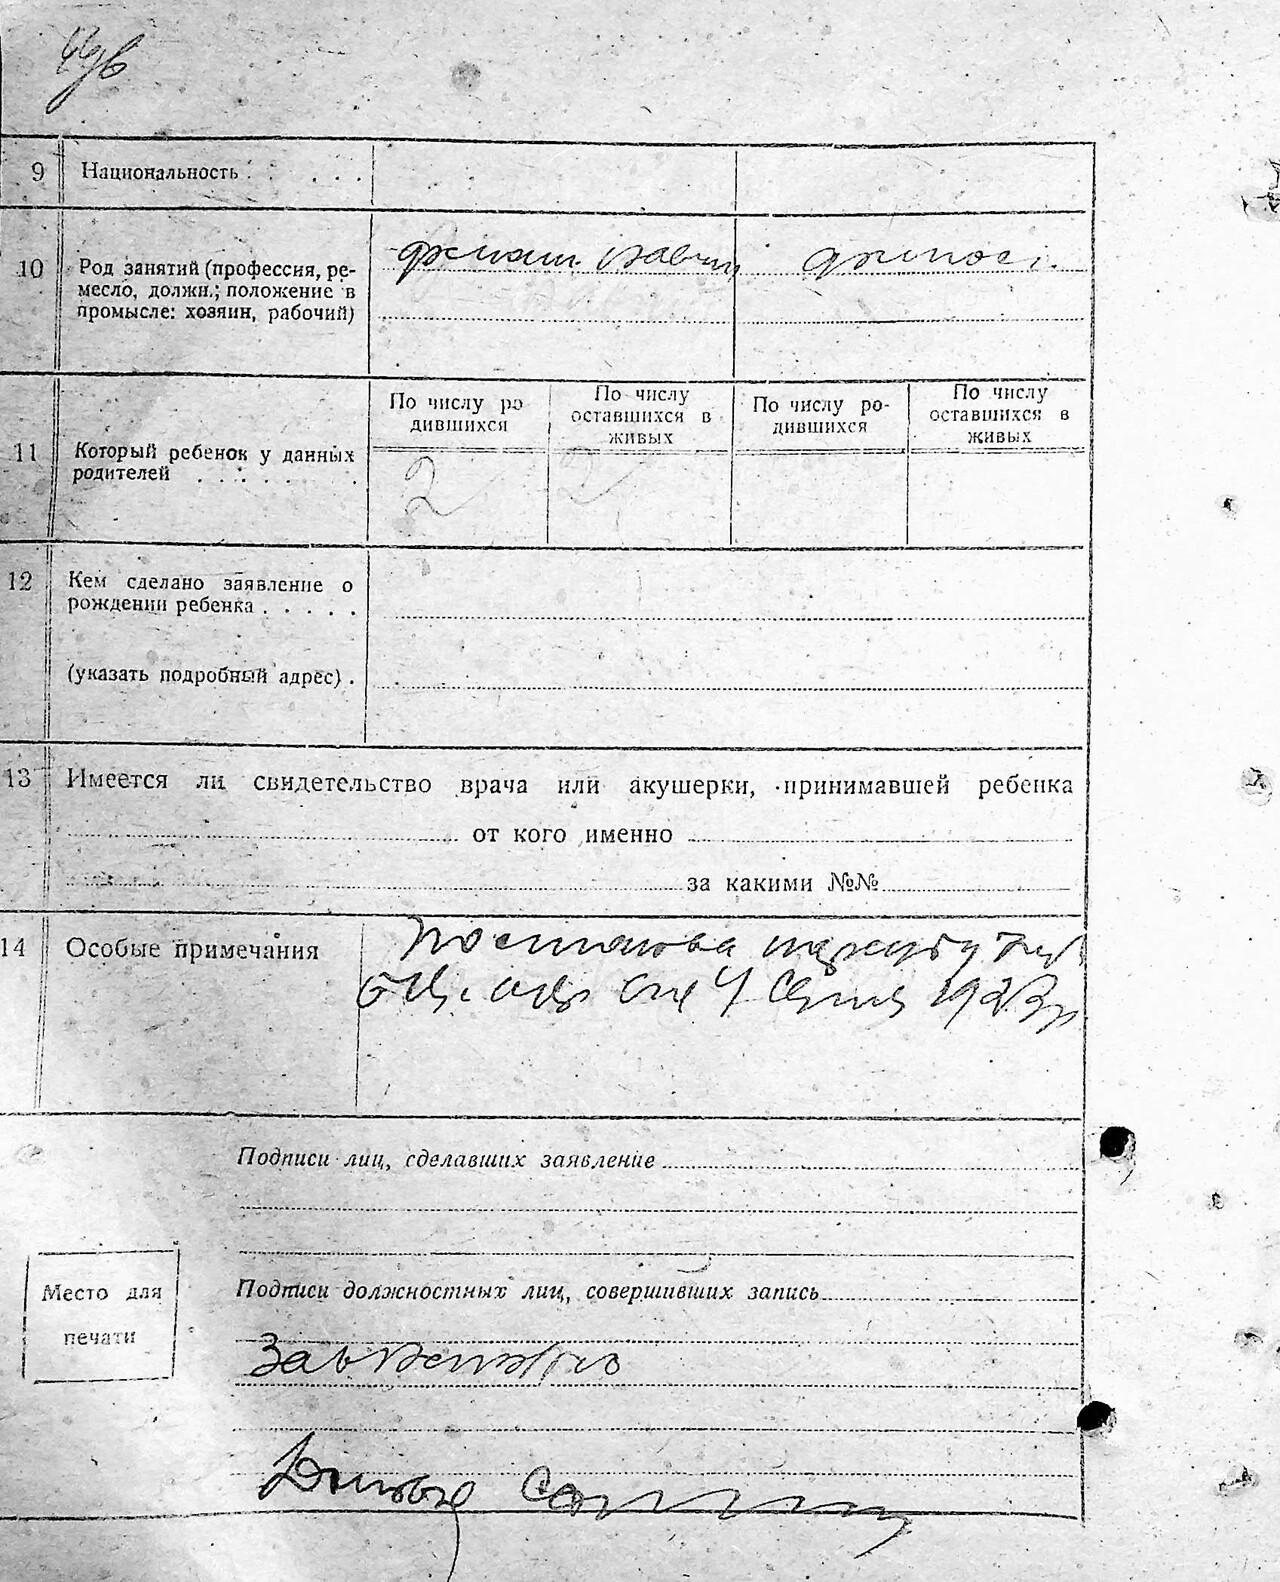 9 Национальность . . . . . .
10 Род занятий (профессия, ре-
месло, должн.; положение в
промысле: хозяин, рабочий)
По числу ро
дившихся
По числу
оставшихся в
живых
По числу ро-
дившихся
По числу
оставшихся в
живых
11 Который ребенок у данных
родителей . . . . . . .
2 2
12 Кем сделано заявление о
рождении ребенка . . . . .
(указать подробный адрес) .
13 Имеется ли свидетельство врача или акушерки, принимавшей ребенка
от кого именно
за какими №№
14 Особые примечания
Постанова
4 1923р
Подписи лиц, сделавших заявление
Подписи должностных лиц, совершивших запись
Место для
печати